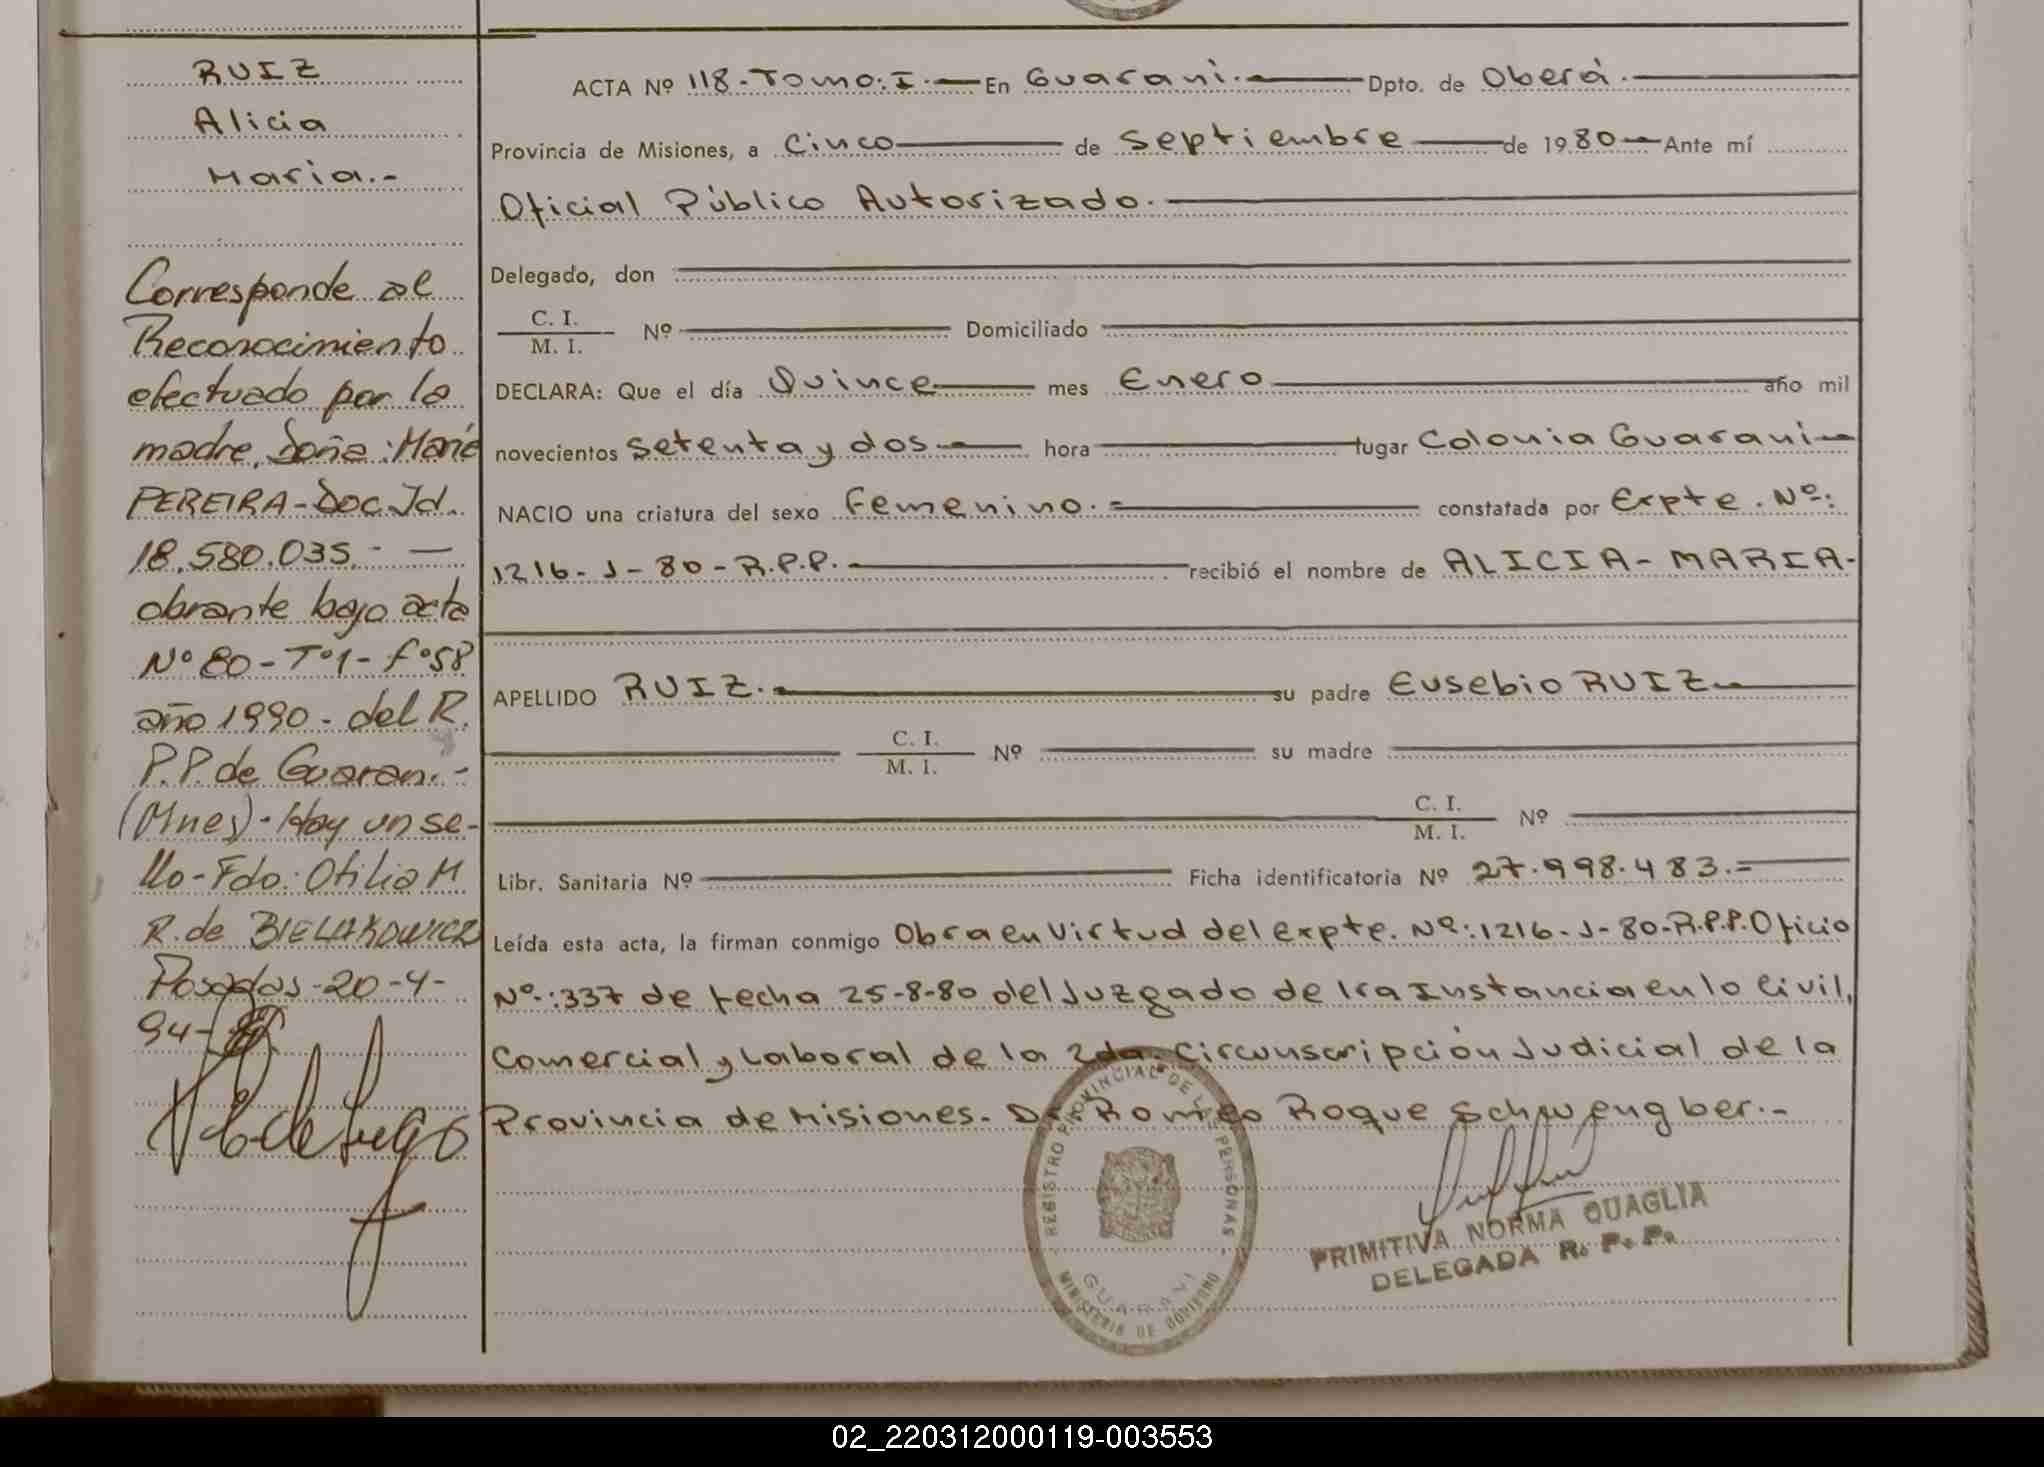 RUIZ
Alicia
Maria.-
Corresponde al
Reconocimiento
efectuado por la
madre, Doña: María
PEREIRA - Doc. Id.
18.580.035.- —
obrante bajo acta
Nº 80 - Tº 1 - fº 58
año 1990 - del R.
P.P. de Guaraní.-
(Mnes) - Hay un se-
llo - Fdo: Otilia M
R. de BIELAKOWICZ
Posadas - 20 - 4 -
94 -
ACTA Nº 118 - Tomo: I. — En Guaraní. — Dpto. de Oberá. —
Provincia de Misiones, a Cinco — de Septiembre — de 1980 — Ante mí
Oficial Público Autorizado. —
Delegado, don —
C. I. / M. I. Nº — Domiciliado —
DECLARA: Que el día Quince — mes Enero — año mil
novecientos setenta y dos — hora — lugar Colonia Guaraní —
NACIO una criatura del sexo Femenino. = — constatada por Expte. Nº:
1216 - J - 80 - R.P.P. — recibió el nombre de ALICIA - MARIA -
APELLIDO RUIZ. — su padre Eusebio RUIZ —
— C. I. / M. I. Nº — su madre —
— C. I. / M. I. Nº —
Libr. Sanitaria Nº — Ficha identificatoria Nº 27.998.483. =
Leída esta acta, la firman conmigo Obra en Virtud del expte. Nº: 1216 - J - 80 - R.P.P. Oficio
Nº: 337 de fecha 25-8-80 del Juzgado de 1ra Instancia en lo Civil,
Comercial y Laboral de la 2da. Circunscripción Judicial de la
Provincia de Misiones. Dr. Romeo Roque Schwengber.-
REGISTRO PROVINCIAL DE LAS PERSONAS
GUARANI
MINISTERIO DE GOBIERNO
PRIMITIVA NORMA QUAGLIA
DELEGADA R. P. P.
02_220312000119-003553